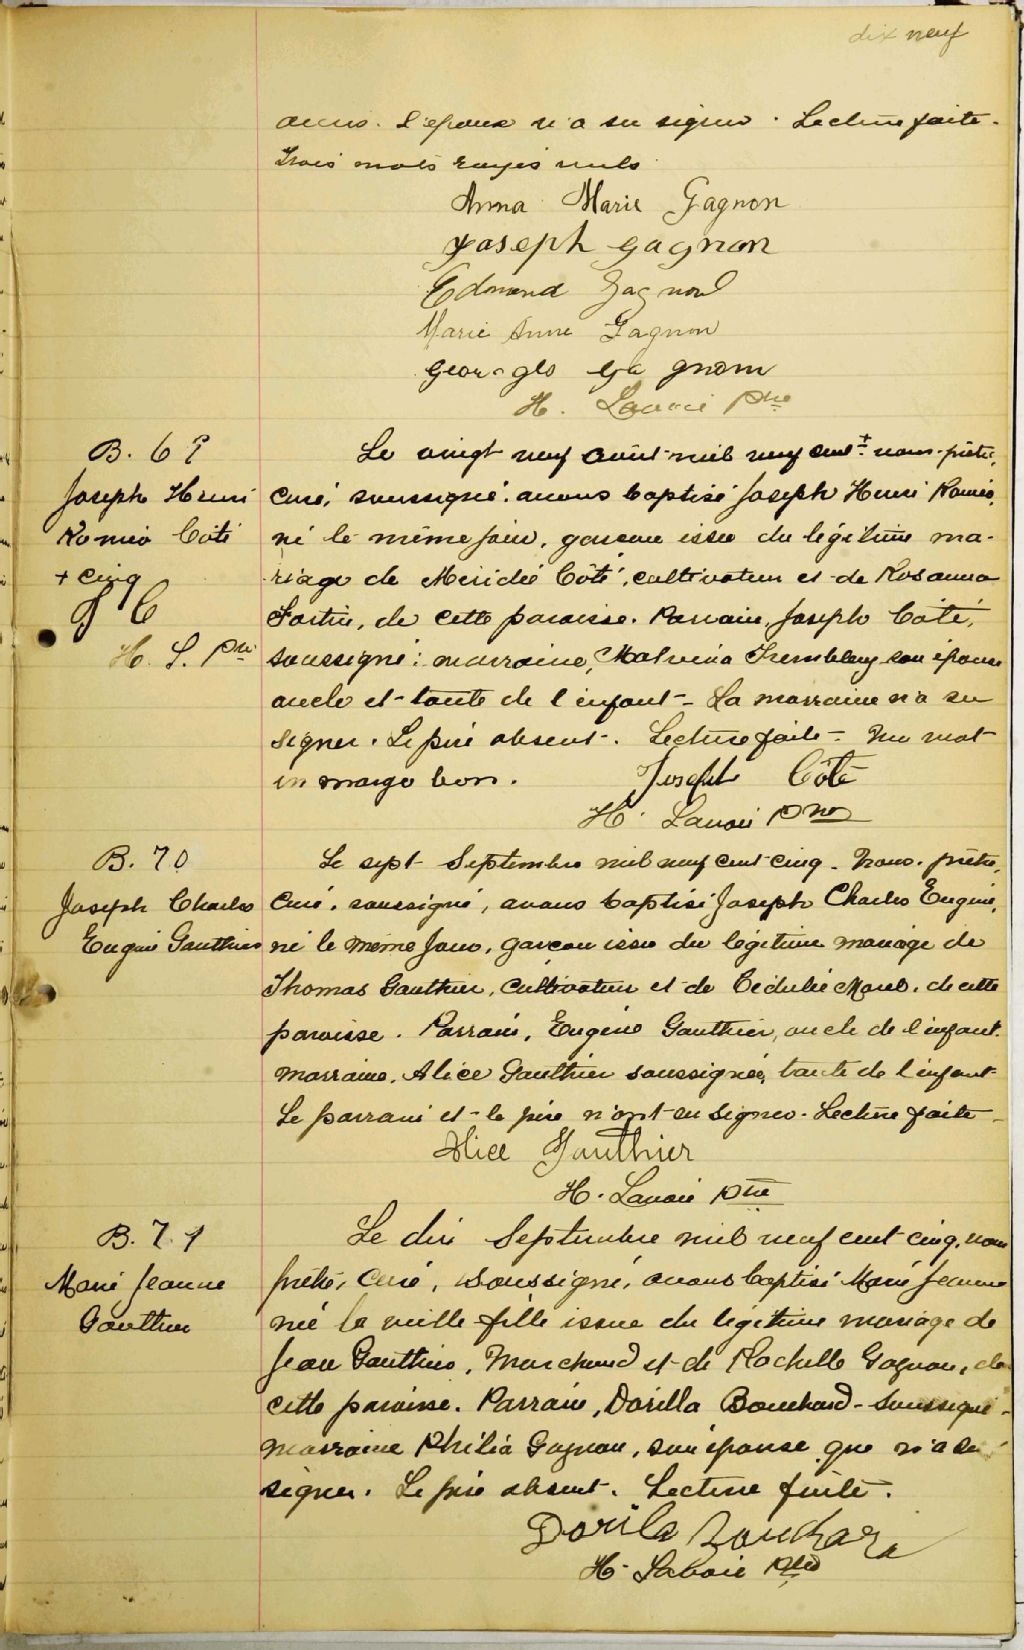 dix neuf
L'époux n'a su signer. Lecture faite.
Trois mots rayés nuls
Anna Marie Gagnon
Joseph Gagnon
Edmond Gagnon
Marie Anne Gagnon
Gagnon
H. Lavoie Ptre
B. 69
Joseph Henri
Roméo Côté
+ cinq
J C
H. L. Ptre
Le vingt neuf août mil neuf cent + nous, prêtre,
curé, soussigné, avons baptisé Joseph Henri Roméo,
né le même jour, garçon issu du légitime ma-
riage de Méridé Côté, cultivateur et de Rosanna
Fortin, de cette paroisse. Parrain, Joseph Côté,
soussigné; marraine, Malvina Tremblay son épouse
oncle et tante de l'enfant. La marraine n'a su
signer. Le père absent. Lecture faite. Un mot
en marge bon.
Joseph Côté
H. Lavoie Ptre
B. 70
Joseph Charles
Eugène Gauthier
Le sept Septembre mil neuf cent cinq. Nous, prêtre,
curé, soussigné, avons baptisé Joseph Charles Eugène,
né le même jour, garçon issu du légitime mariage de
Thomas Gauthier, cultivateur et de Cédulie Morel, de cette
paroisse. Parrain, Eugène Gauthier, oncle de l'enfant.
marraine, Alice Gauthier soussignée, tante de l'enfant
Le parrain et le père n'ont su signer. Lecture faite
Alice Gauthier
H. Lavoie Ptre
B. 71
Marie Jeanne
Gauthier
Le dix Septembre mil neuf cent cinq, nous
prêtre, curé, soussigné, avons baptisé Marie Jeanne
née la veille fille issue du légitime mariage de
Jean Gauthier, Marchand et de Rachelle Gagnon, de
cette paroisse. Parrain, Dorilla Bouchard, soussigné,
marraine Philia Gagnon, son épouse que n'a su
signer. Le père absent. Lecture faite.
Dorila Bouchard
H. Lavoie Ptre